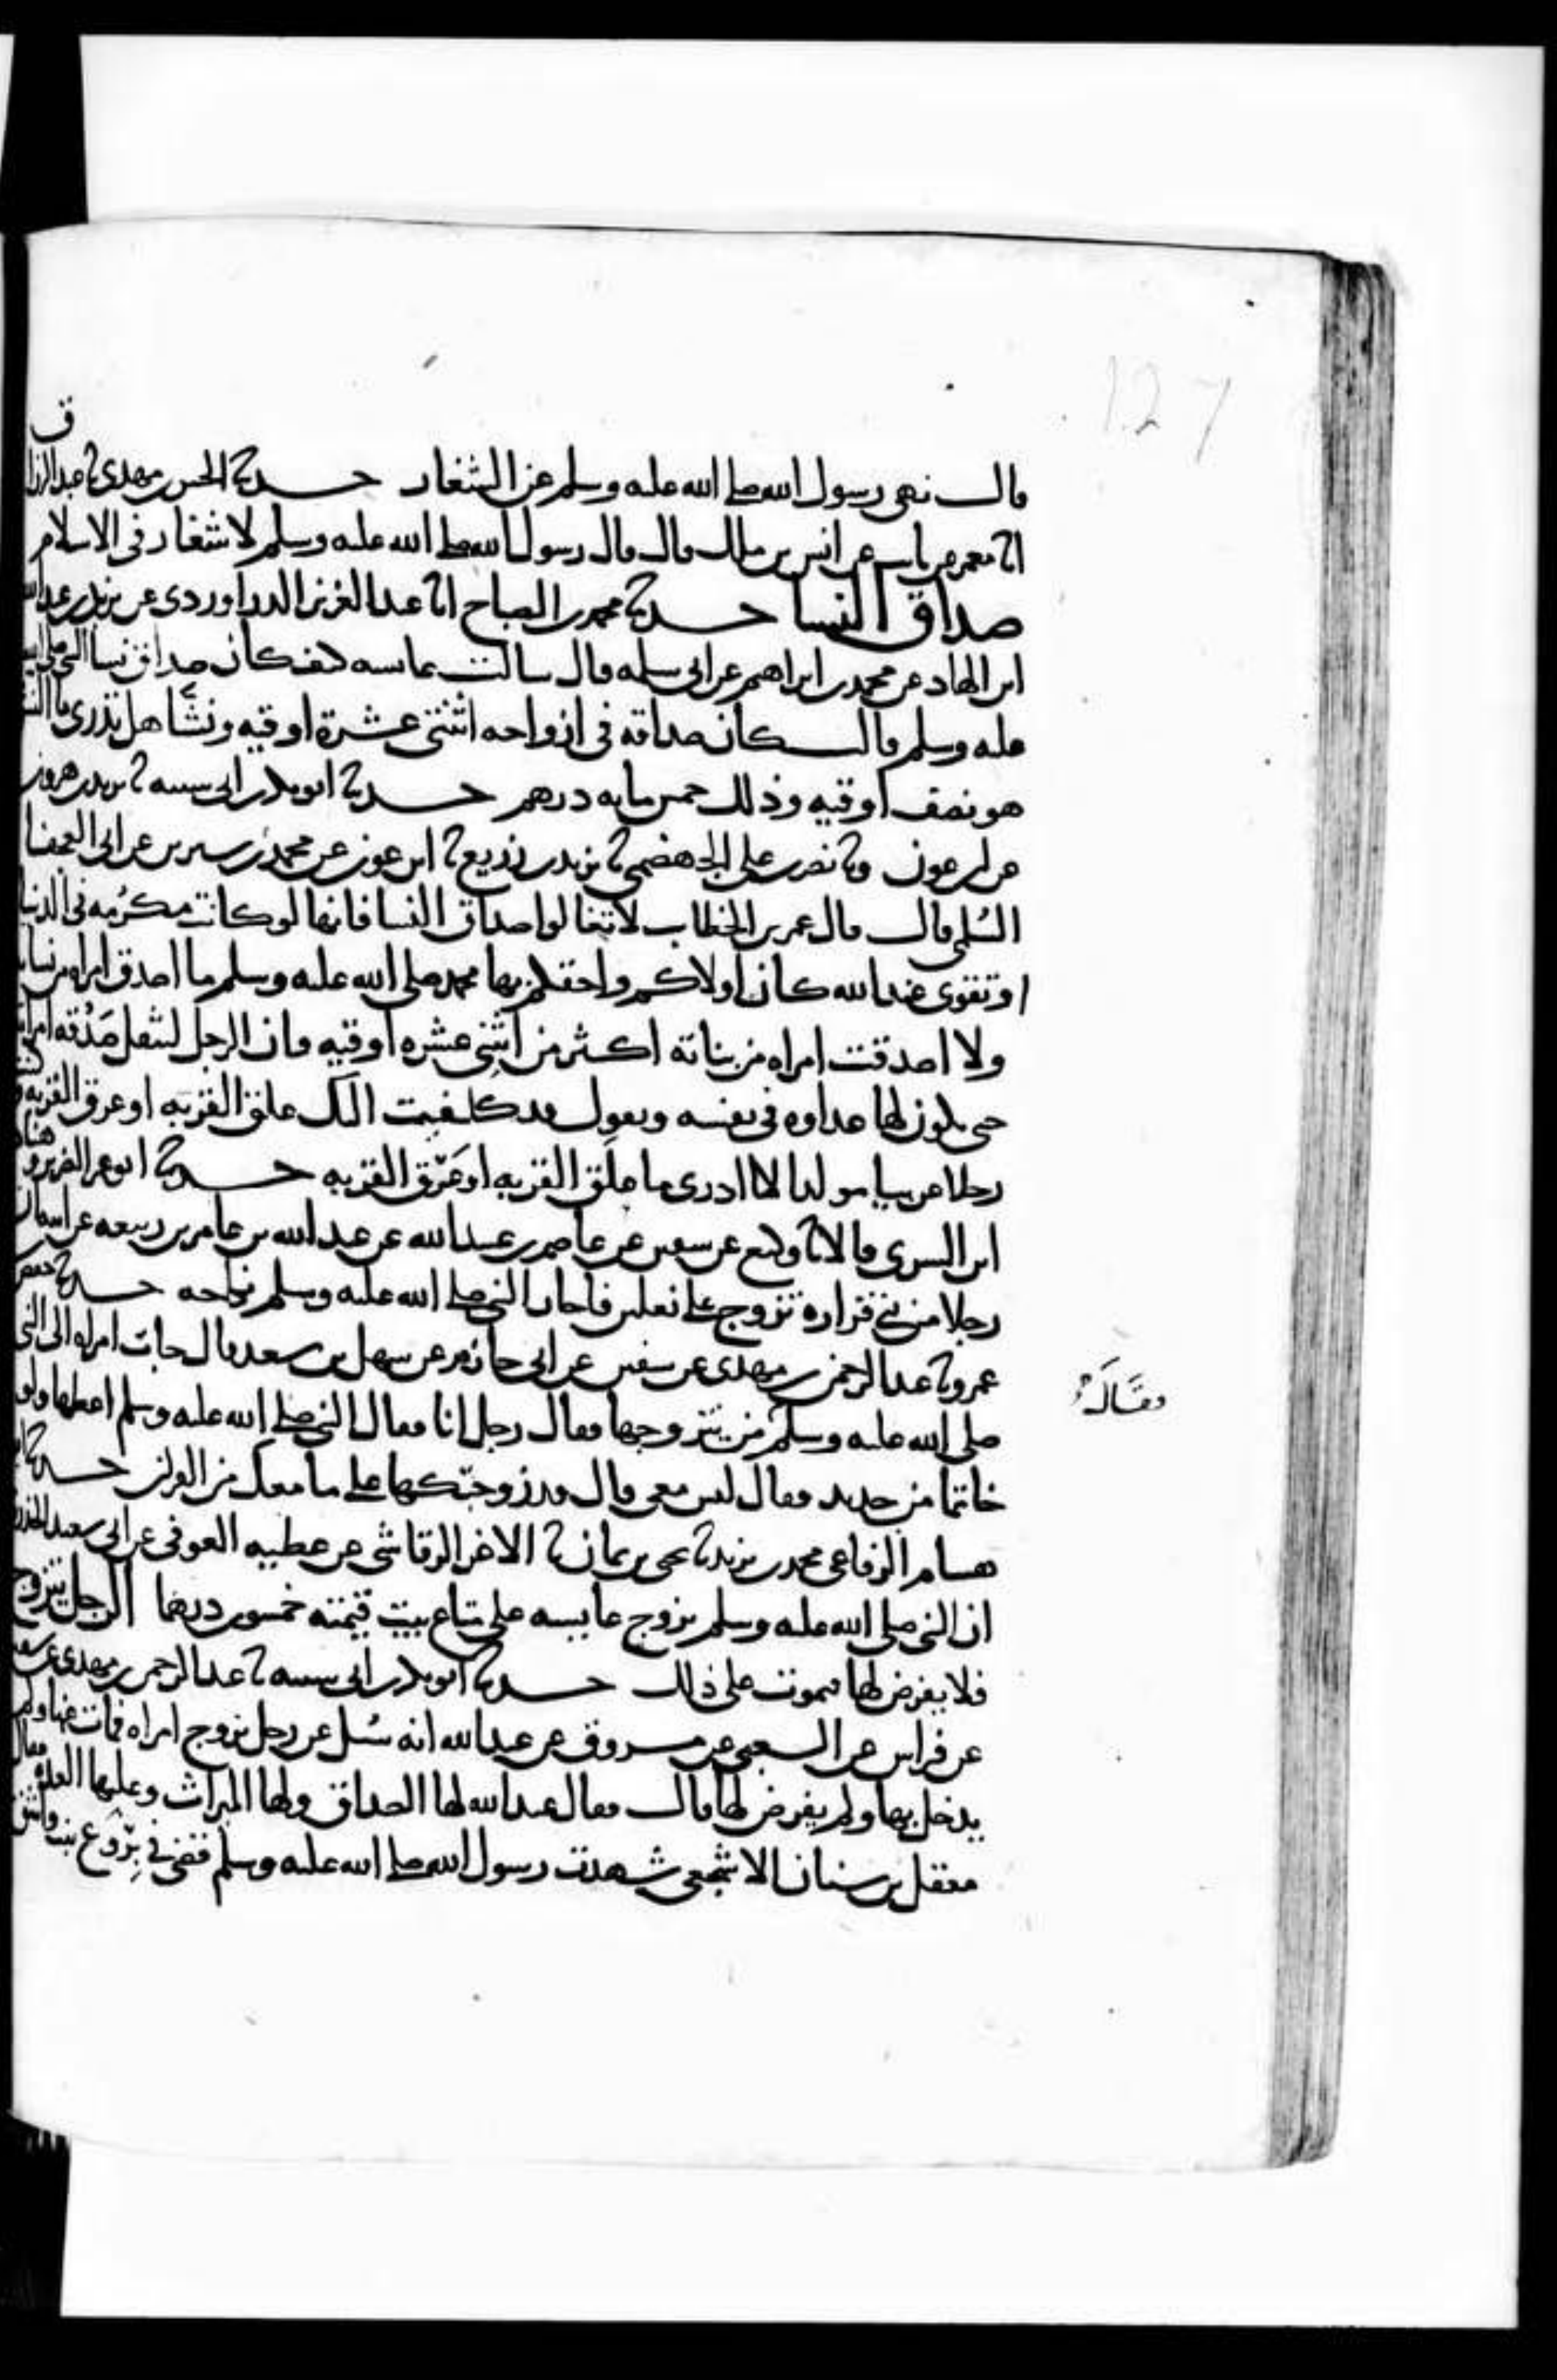 127
قال نهى رسول الله صلى الله عليه وسلم عن الشغار حدثنا الحسن بن مهدي ثنا عبد الرزاق
انا معمر عن ثابت عن انس بن ملك قال قال رسول الله صلى الله عليه وسلم لا شغار في الاسلام
صداق النسا حدثنا محمد بن الصباح انا عبد العزيز الدراوردي عن يزيد بن عبد الله
ابن الهاد عن محمد بن ابراهيم عن ابي سلمه قال سالت عايشه كيف كان صداق نسا النبي صلى الله
عليه وسلم قالت كان صداقه في ازواجه اثنتي عشرة اوقيه ونشا هل تدري ما النش
هو نصف اوقيه وذلك خمس مايه درهم حدثنا ابو بكر بن ابي شيبه ثنا يزيد بن هرون
عن ابن عون وثنا نصر بن علي الجهضمي ثنا يزيد بن زريع ثنا ابن عون عن محمد بن سيرين عن ابي العجفا
السلمي قال قال عمر بن الخطاب لا تغالوا صداق النسا فانها لو كانت مكرمه في الدنيا
او تقوى عند الله كان اولاكم واحقكم بها محمد صلى الله عليه وسلم ما اصدق امراه من نسايه
ولا اصدقت امراه من بناته اكثر من اثني عشره اوقيه وان الرجل ليثقل صدقه امراته
حتى يكون لها عداوه في نفسه ويقول قد كلفت اليك علق القربه او عرق القربه وكنت
رجلا عربيا مولدا لا ادري ما علق القربه او عرق القربه حدثنا ابو عمر الضرير وهناد
ابن السري قالا ثنا وكيع عن سفين عن عاصم بن عبيد الله عن عبد الله بن عامر بن ربيعه عن ابيه ان
رجلا من بني فزاره تزوج على نعلين فاجاز النبي صلى الله عليه وسلم نكاحه حدثنا حفص بن
عمرو ثنا عبد الرحمن بن مهدي عن سفين عن ابي حازم عن سهل بن سعد قال جات امراه الى النبي
صلى الله عليه وسلم من يتزوجها فقال رجل انا فقال النبي صلى الله عليه وسلم اعطها ولو
فقال
خاتما من حديد فقال ليس معي قال قد زوجتكها على ما معك من القران حدثنا ابو
هشام الرفاعي محمد بن يزيد ثنا يحيى بن يمان ثنا الاغر الرقاشي عن عطيه العوفي عن ابي سعيد الخدري
ان النبي صلى الله عليه وسلم تزوج عايشه على متاع بيت قيمته خمسون درهما الرجل يتزوج
فلا يفرض لها فيموت على ذلك حدثنا ابو بكر بن ابي شيبه ثنا عبد الرحمن بن مهدي عن سفين
عن فراس عن الشعبي عن مسروق عن عبد الله انه سئل عن رجل تزوج امراه فمات عنها ولم
يدخل بها ولم يفرض لها قال فقال عبد الله لها الصداق ولها الميراث وعليها العده فقال
معقل بن سنان الاشجعي شهدت رسول الله صلى الله عليه وسلم قضى في بروع بنت واشق